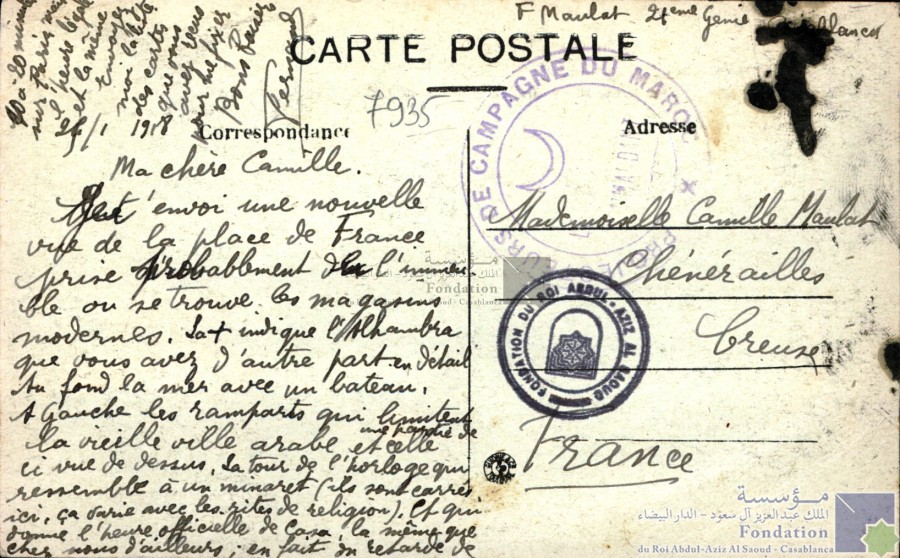 F Maulat 2eme Genie Casablanca
CARTE POSTALE
7935
Correspondance
Adresse
25/1 1918
Ma chère Camille.
Je t'envoi une nouvelle
vue de la place de France
prise probablement de l'immeu
ble ou se trouve les magasins
modernes. La + indique l'Alhambra
que vous avez d'autre part en détail
Au fond la mer avec un bateau.
A Gauche les ramparts qui limitent
la vieille ville arabe et celle
une partie de
ci vue de dessus. La tour de l'horloge qui
ressemble à un minaret (ils sont carrés
ici, ça varie avec les rites de religion). Et qui
donne l'heure officielle de Casa, la même que
chez nous d'ailleurs; en fait on retarde de
20 minutes
sur Paris mais
l'heure légale
est la même
Envoyez
moi la liste
des cartes
que vous
avez reçues
pour me fixer
Bons Baisers
Fernand
Mademoiselle Camille Maulat
Chénérailles
Creuse
France
DE CAMPAGNE DU MAROC
FONDATION DU ROI ABDUL-AZIZ AL SAOUD
مؤسسة
الملك عبد العزيز آل سعود - الدار البيضاء
Fondation
du Roi Abdul-Aziz Al Saoud - Casablanca
مؤسسة
الملك عبد العزيز آل سعود - الدار البيضاء
Fondation
du Roi Abdul-Aziz Al Saoud - Casablanca